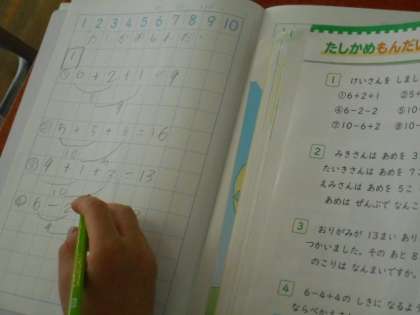 1 2 3 4 5 6 7 8 9 10
1
6+2+1=9
9
5+5+6=16
10
9+1+3=13
10
6-
たしかめもんだい
1 けいさんを しまし
①6+2+1 ②5+
④6-2-2 ⑤10-
⑦10-6+2 ⑧10-
2 みきさんは あめを 3
たいきさんは あめを 7
えみさんは あめを 5こ
あめは ぜんぶで なんこ
3 おりがみが 13まい あり
つかいました。その あと 8
のこりは なんまいですか。
4 6-4+4の しきに なるよう
ならべかえ